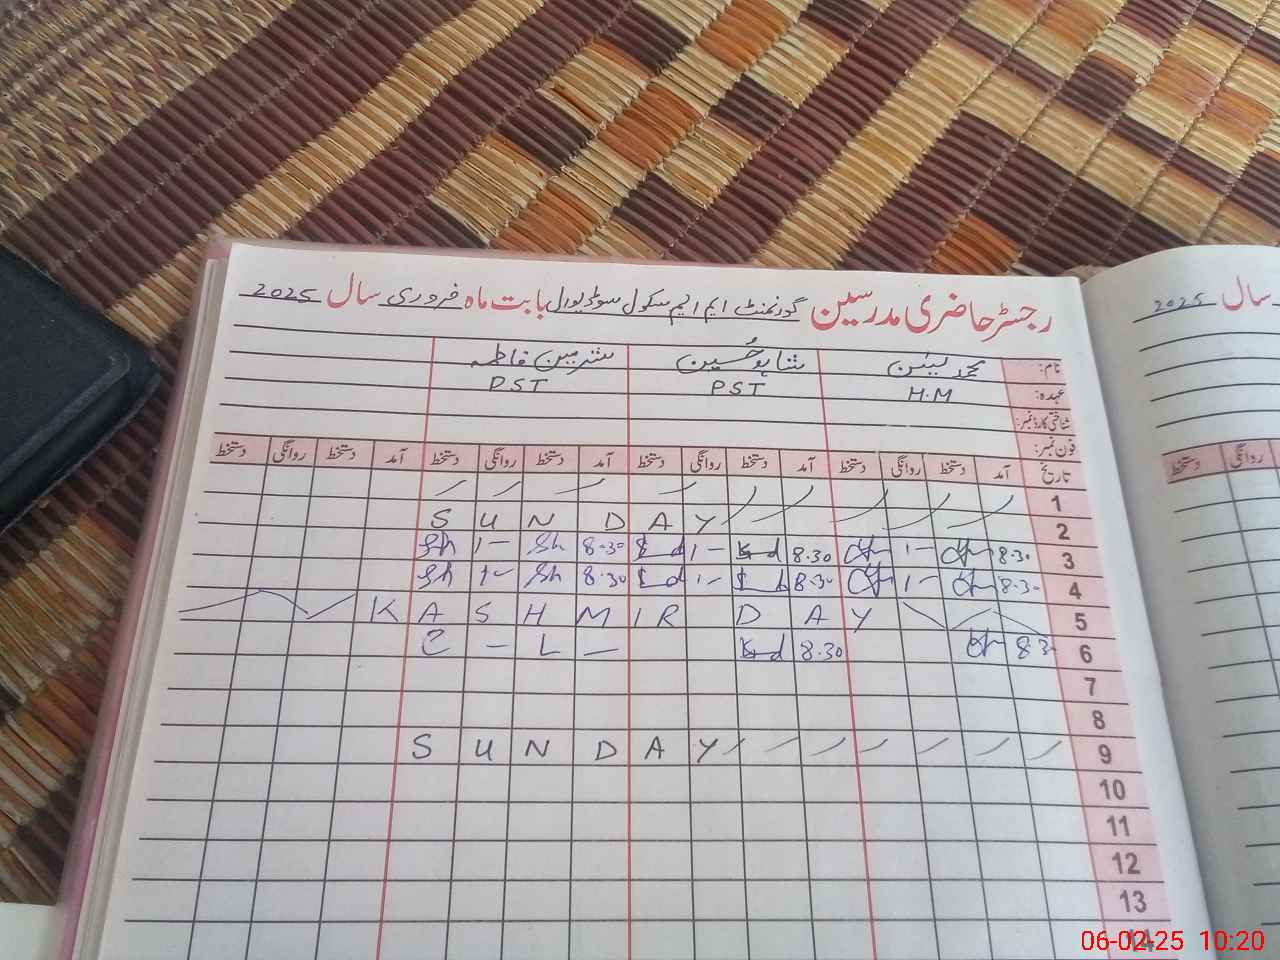 رجسٹر حاضری مدرسین گورنمنٹ ایم ایم سکول سوڈیوال بابت ماہ فروری سال 2025
سال 2025
نام: محمد یٰسین شاہد حُسین شرمین فاطمہ
عہدہ: H.M PST PST
شناختی کارڈ نمبر:
فون نمبر:
تاریخ آمد دستخط روانگی دستخط آمد دستخط روانگی دستخط آمد دستخط روانگی دستخط آمد دستخط روانگی دستخط
روانگی دستخط
1
SUNDAY 2
3 8.30 1- 8.30 1- 8.30 1-
4 8.30 1- 8.30 1- 8.30 1-
KASHMIR DAY 5
6 8.3 8.30 C - L -
7
8
SUNDAY 9
10
11
12
13
14
06-02-25 10:20